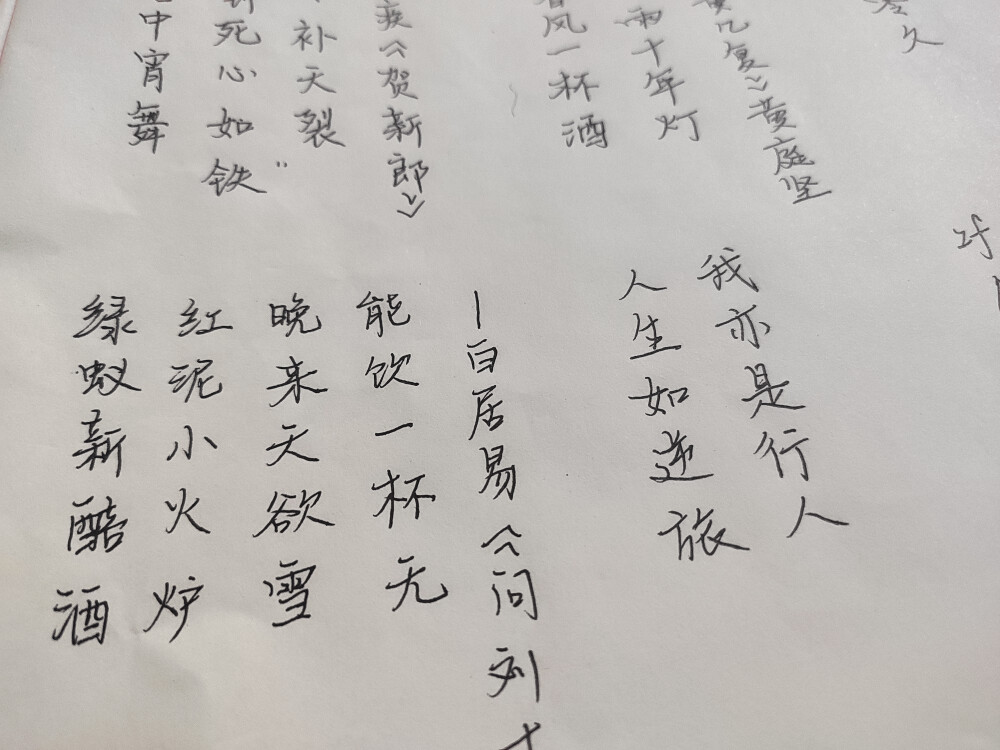 中宵舞
死心如铁”
补天裂
疾《贺新郎》
春风一杯酒
雨十年灯
黄几复》黄庭坚
久
绿蚁新醅酒
红泥小火炉
晚来天欲雪
能饮一杯无
—白居易《问刘十
人生如逆旅
我亦是行人